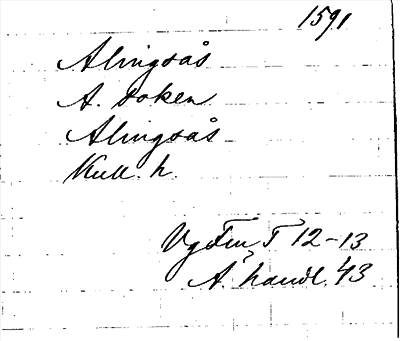 1591
Alingsås
A. soken
Alingsås
Kull. h.
Vg Fm T 12-13
Å handl. 43